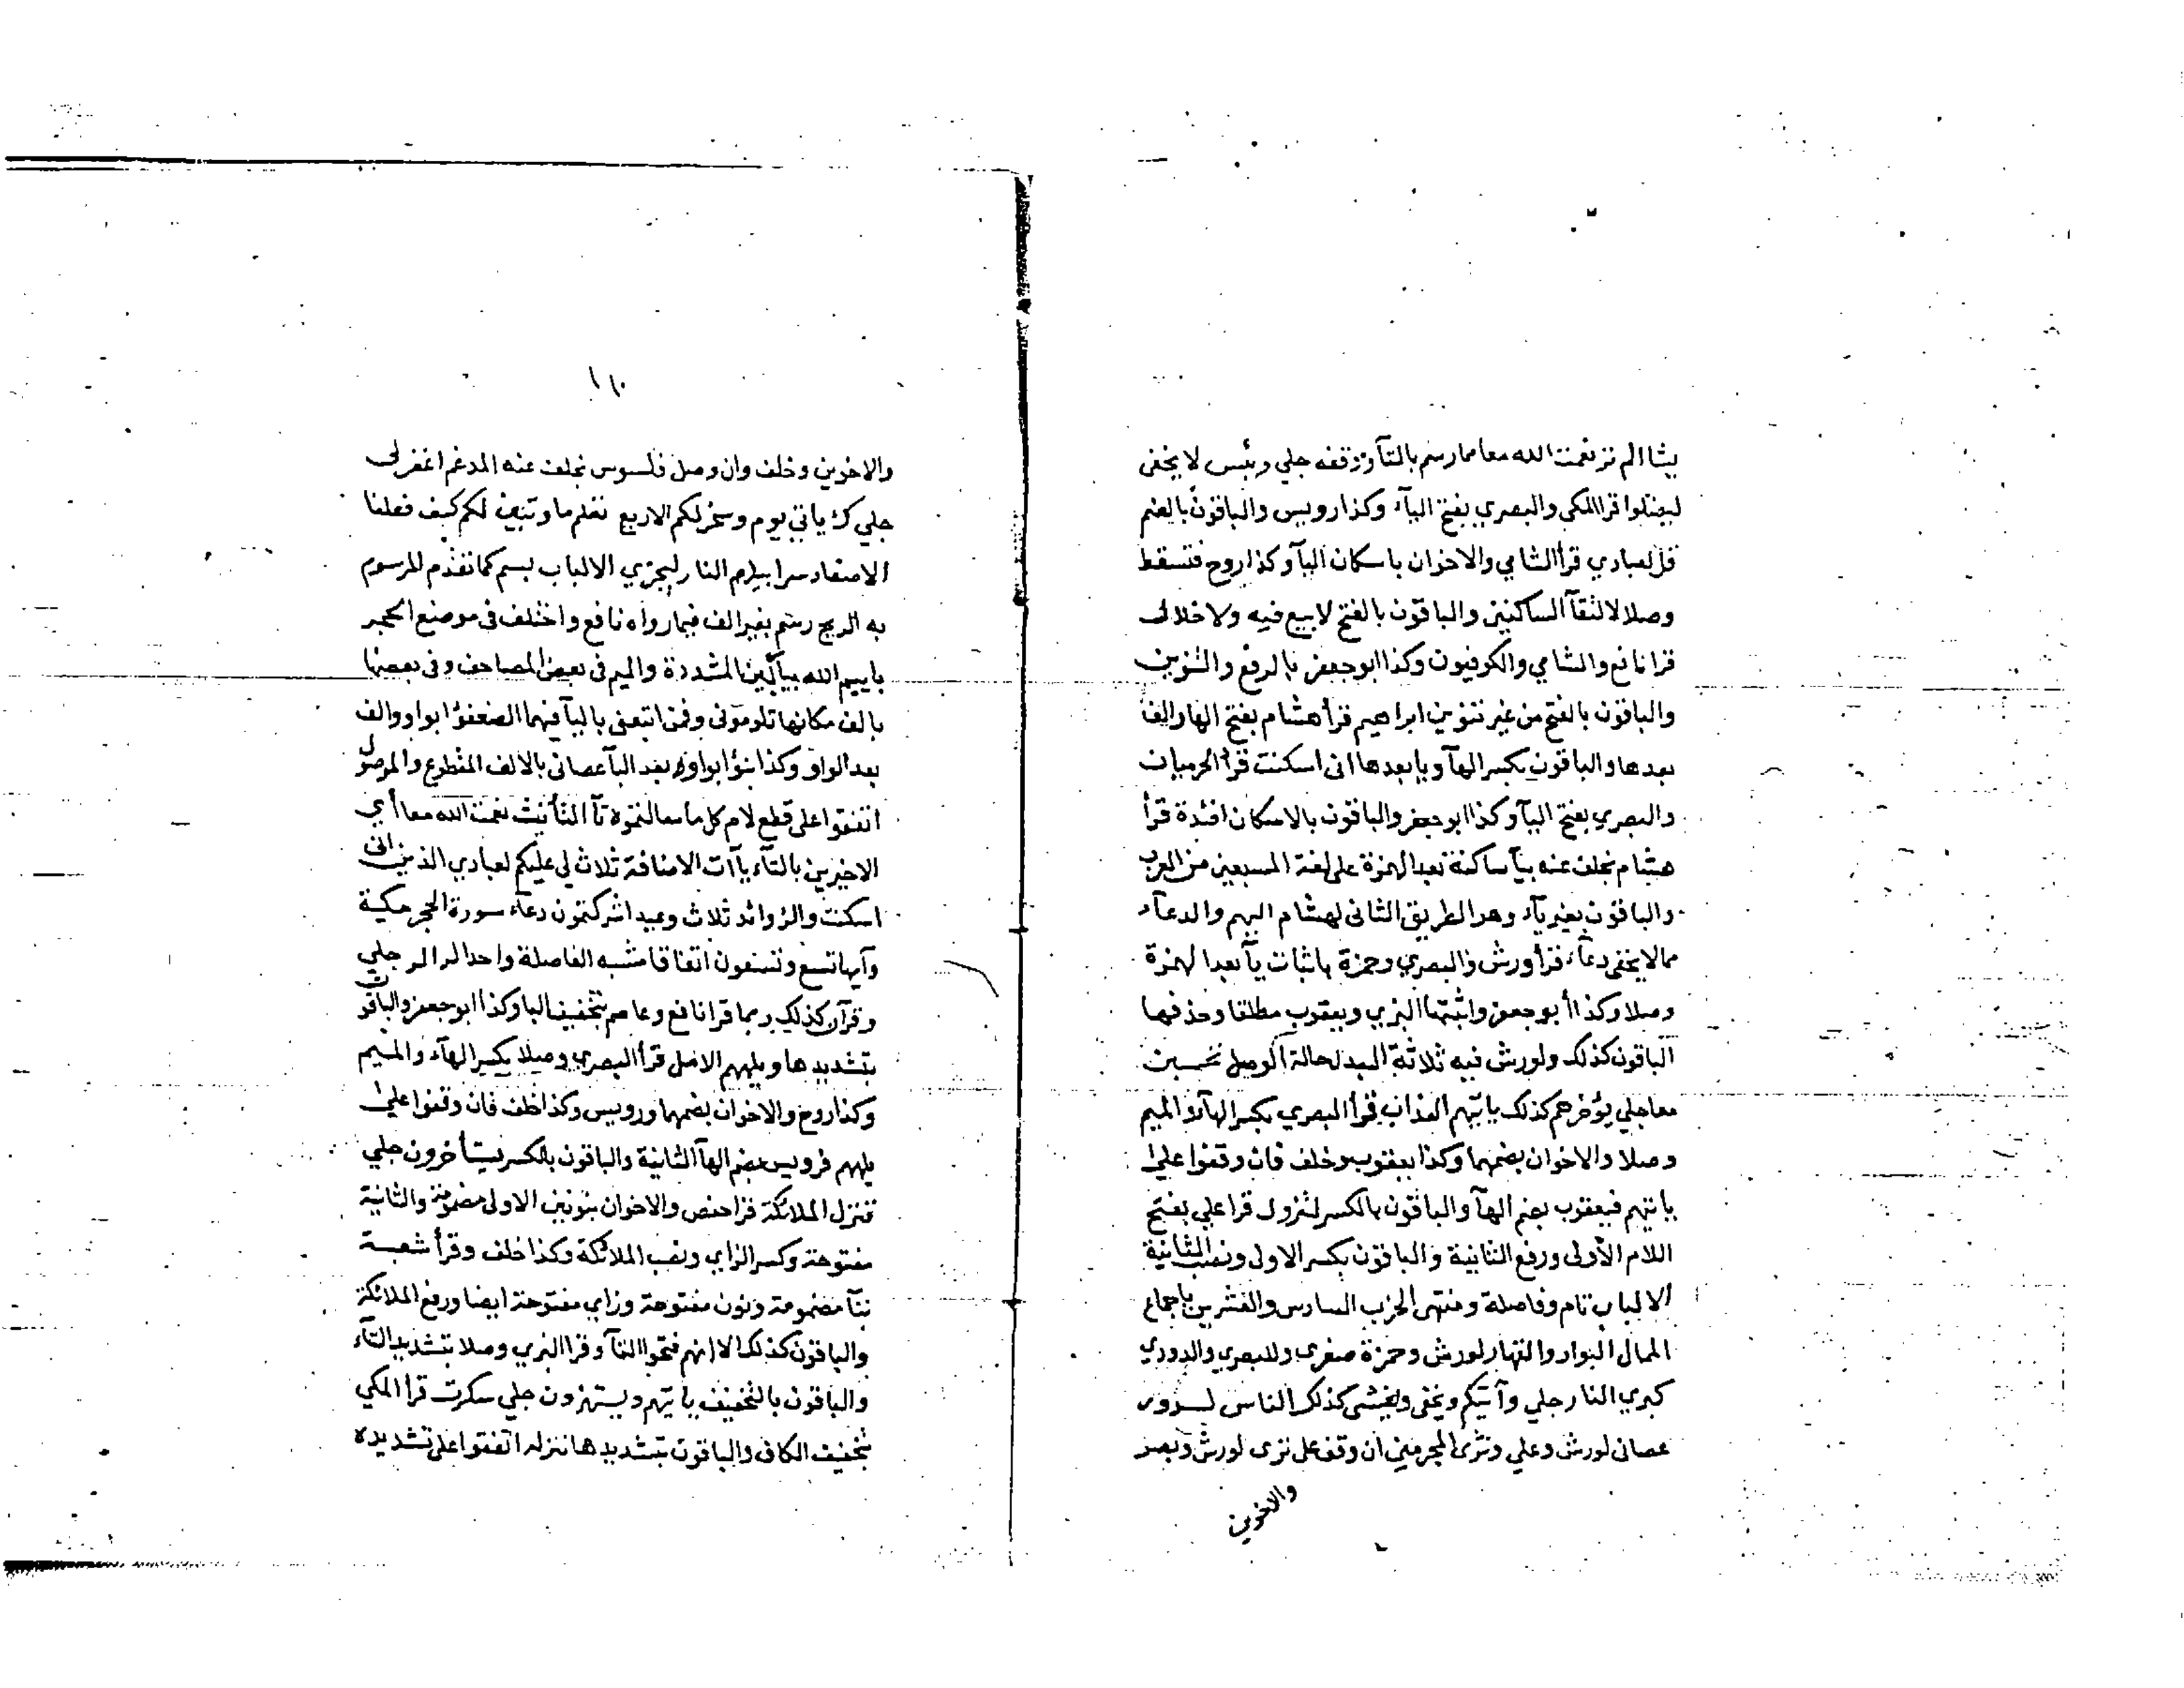 يشا الم تر نعمت الله معا مما رسم بالتآ ووقفه جلي وبئس لا يخفى
ليضلوا قرا المكي والبصري بفتح اليآء وكذا رويس والباقون بالضم
قل لعبادي قرأ الشامي والاخوان باسكان اليآ وكذا روح فتسقط
وصلا لالتقآ الساكنين والباقون بالفتح لا بيع فيه ولا خلال
قرا نافع والشامي والكوفيون وكذا ابو جعفر بالرفع والتنوين
والباقون بالفتح من غير تنوين ابراهيم قرأ هشام بفتح الها والف
بعدها والباقون بكسر الهآ ويا بعدها انى اسكنت قرأ الحرميان
والبصري بفتح اليآ وكذا ابو جعفر والباقون بالاسكان افئدة قرأ
هشام بخلف عنه بيآ ساكنة بعد الهمزة على لغة المسبعين من العرب
والباقون بغير يآء وهو الطريق الثانى لهشام اليهم والدعآء
مما لا يخفى دعآء قرأ ورش والبصري وحمزة باثبات يآ بعد الهمزة
وصلا وكذا أبو جعفر واثبتها البزي ويعقوب مطلقا وحذفها
الباقون كذلك ولورش فيه ثلاثة البدل حالة الوصل تحسبن
معا جلي يؤخرهم كذلك يأتيهم العذاب قرأ البصري بكسر الهآء والميم
وصلا والاخوان بضمهما وكذا يعقوب وخلف فان وقفوا على
يأتيهم فيعقوب بضم الهآ والباقون بالكسر لتزول قرا علي بفتح
اللام الأولى ورفع الثانية والباقون بكسر الاولى ونصب الثانية
الالباب تام وفاصلة ومنتهى الحزب السادس والعشرين باجماع
الممال البوار والقهار لورش وحمزة صغرى وللبصري والدوري
كبري النار جلي وآتيكم ويخفى ويغشى كذلك الناس لدوري
عصانى لورش وعلي وترى المجرمين ان وقف على ترى لورش وبصر
والاخوين
١١٠
والاخوين وخلف وان وصل فلسوس بخلف عنه المدغم اغفر لى
جلي ك يأتي يوم وسخر لكم الاربع تعلم ما وتبين لكم كيف فعلنا
الاصفاد سرابيلهم النار ليجزي الالباب بسم كما تقدم المرسوم
به الريح رسم بغير الف فيما رواه نافع واختلف فى موضع الحجر
باييم الله بيآئين المشددة والميم فى بعض المصاحف وفى بعضها
بالف مكانها تلومونى وفمن اتبعنى باليآ فيهما الضعفؤا بواو والف
بعد الواو وكذا نبؤا بواو بعد البآ عصانى بالالف المقطوع والموصول
اتفقوا على قطع لام كل ما سالتموه تآ التأنيث نعمت الله معا أي
الاخيرين بالتآء يآآت الاضافة ثلاث لي عليكم لعبادي الذين انى
اسكنت والزوائد ثلاث وعيد اشركتمون دعآء سورة الحجر مكية
وآيها تسع وتسعون اتفاقا مشبه الفاصلة واحد الر الر جلي
وقرآن كذلك ربما قرا نافع وعاصم بتخفيف البا وكذا ابو جعفر والباقون
بتشديدها ويلههم الامل قرأ البصري وصلا بكسر الهآء والميم
وكذا روح والاخوان بضمهما ورويس وكذا خلف فان وقفوا على
يلههم فرويس بضم الهآ الثانية والباقون بالكسر يستأخرون جلي
تنزل الملائكة قرا حفص والاخوان بنونين الاولى مضمومة والثانية
مفتوحة وكسر الزاي ونصب الملائكة وكذا خلف وقرأ شعبة
بتآ مضمومة ونون مفتوحة وزاي مفتوحة ايضا ورفع الملائكة
والباقون كذلك الا انهم فتحوا التآ وقرا البزي وصلا بتشديد التآء
والباقون بالتخفيف يأتيهم ويستهزون جلي سكرت قرا المكي
بتخفيف الكاف والباقون بتشديدها ننزله اتفقوا على تشديده